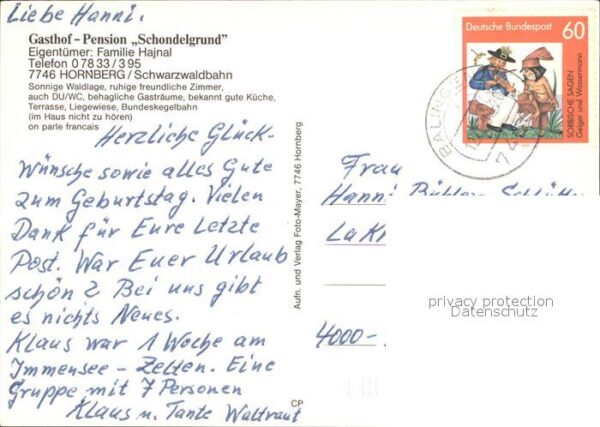 Liebe Hanni.
Gasthof - Pension „Schondelgrund"
Eigentümer: Familie Hajnal
Telefon 0 78 33 / 3 95
7746 HORNBERG / Schwarzwaldbahn
Sonnige Waldlage, ruhige freundliche Zimmer,
auch DU/WC, behagliche Gasträume, bekannt gute Küche,
Terrasse, Liegewiese, Bundeskegelbahn
(im Haus nicht zu hören)
on parle francais
Herzliche Glück-
Wünsche sowie alles Gute
zum Geburtstag. Vielen
Dank für Eure Letzte
Post. War Euer Urlaub
schön? Bei uns gibt
es nichts Neues.
Klaus war 1 Woche am
Immensee - Zelten. Eine
Gruppe mit 7 Personen
Klaus u. Tante Waltraut
Aufn. und Verlag Foto-Mayer, 7746 Hornberg
CP
Deutsche Bundespost
60
SORBISCHE SAGEN
Geiger und Wassermann
BALINGEN
Frau
Hanni
4000-
privacy protection
Datenschutz